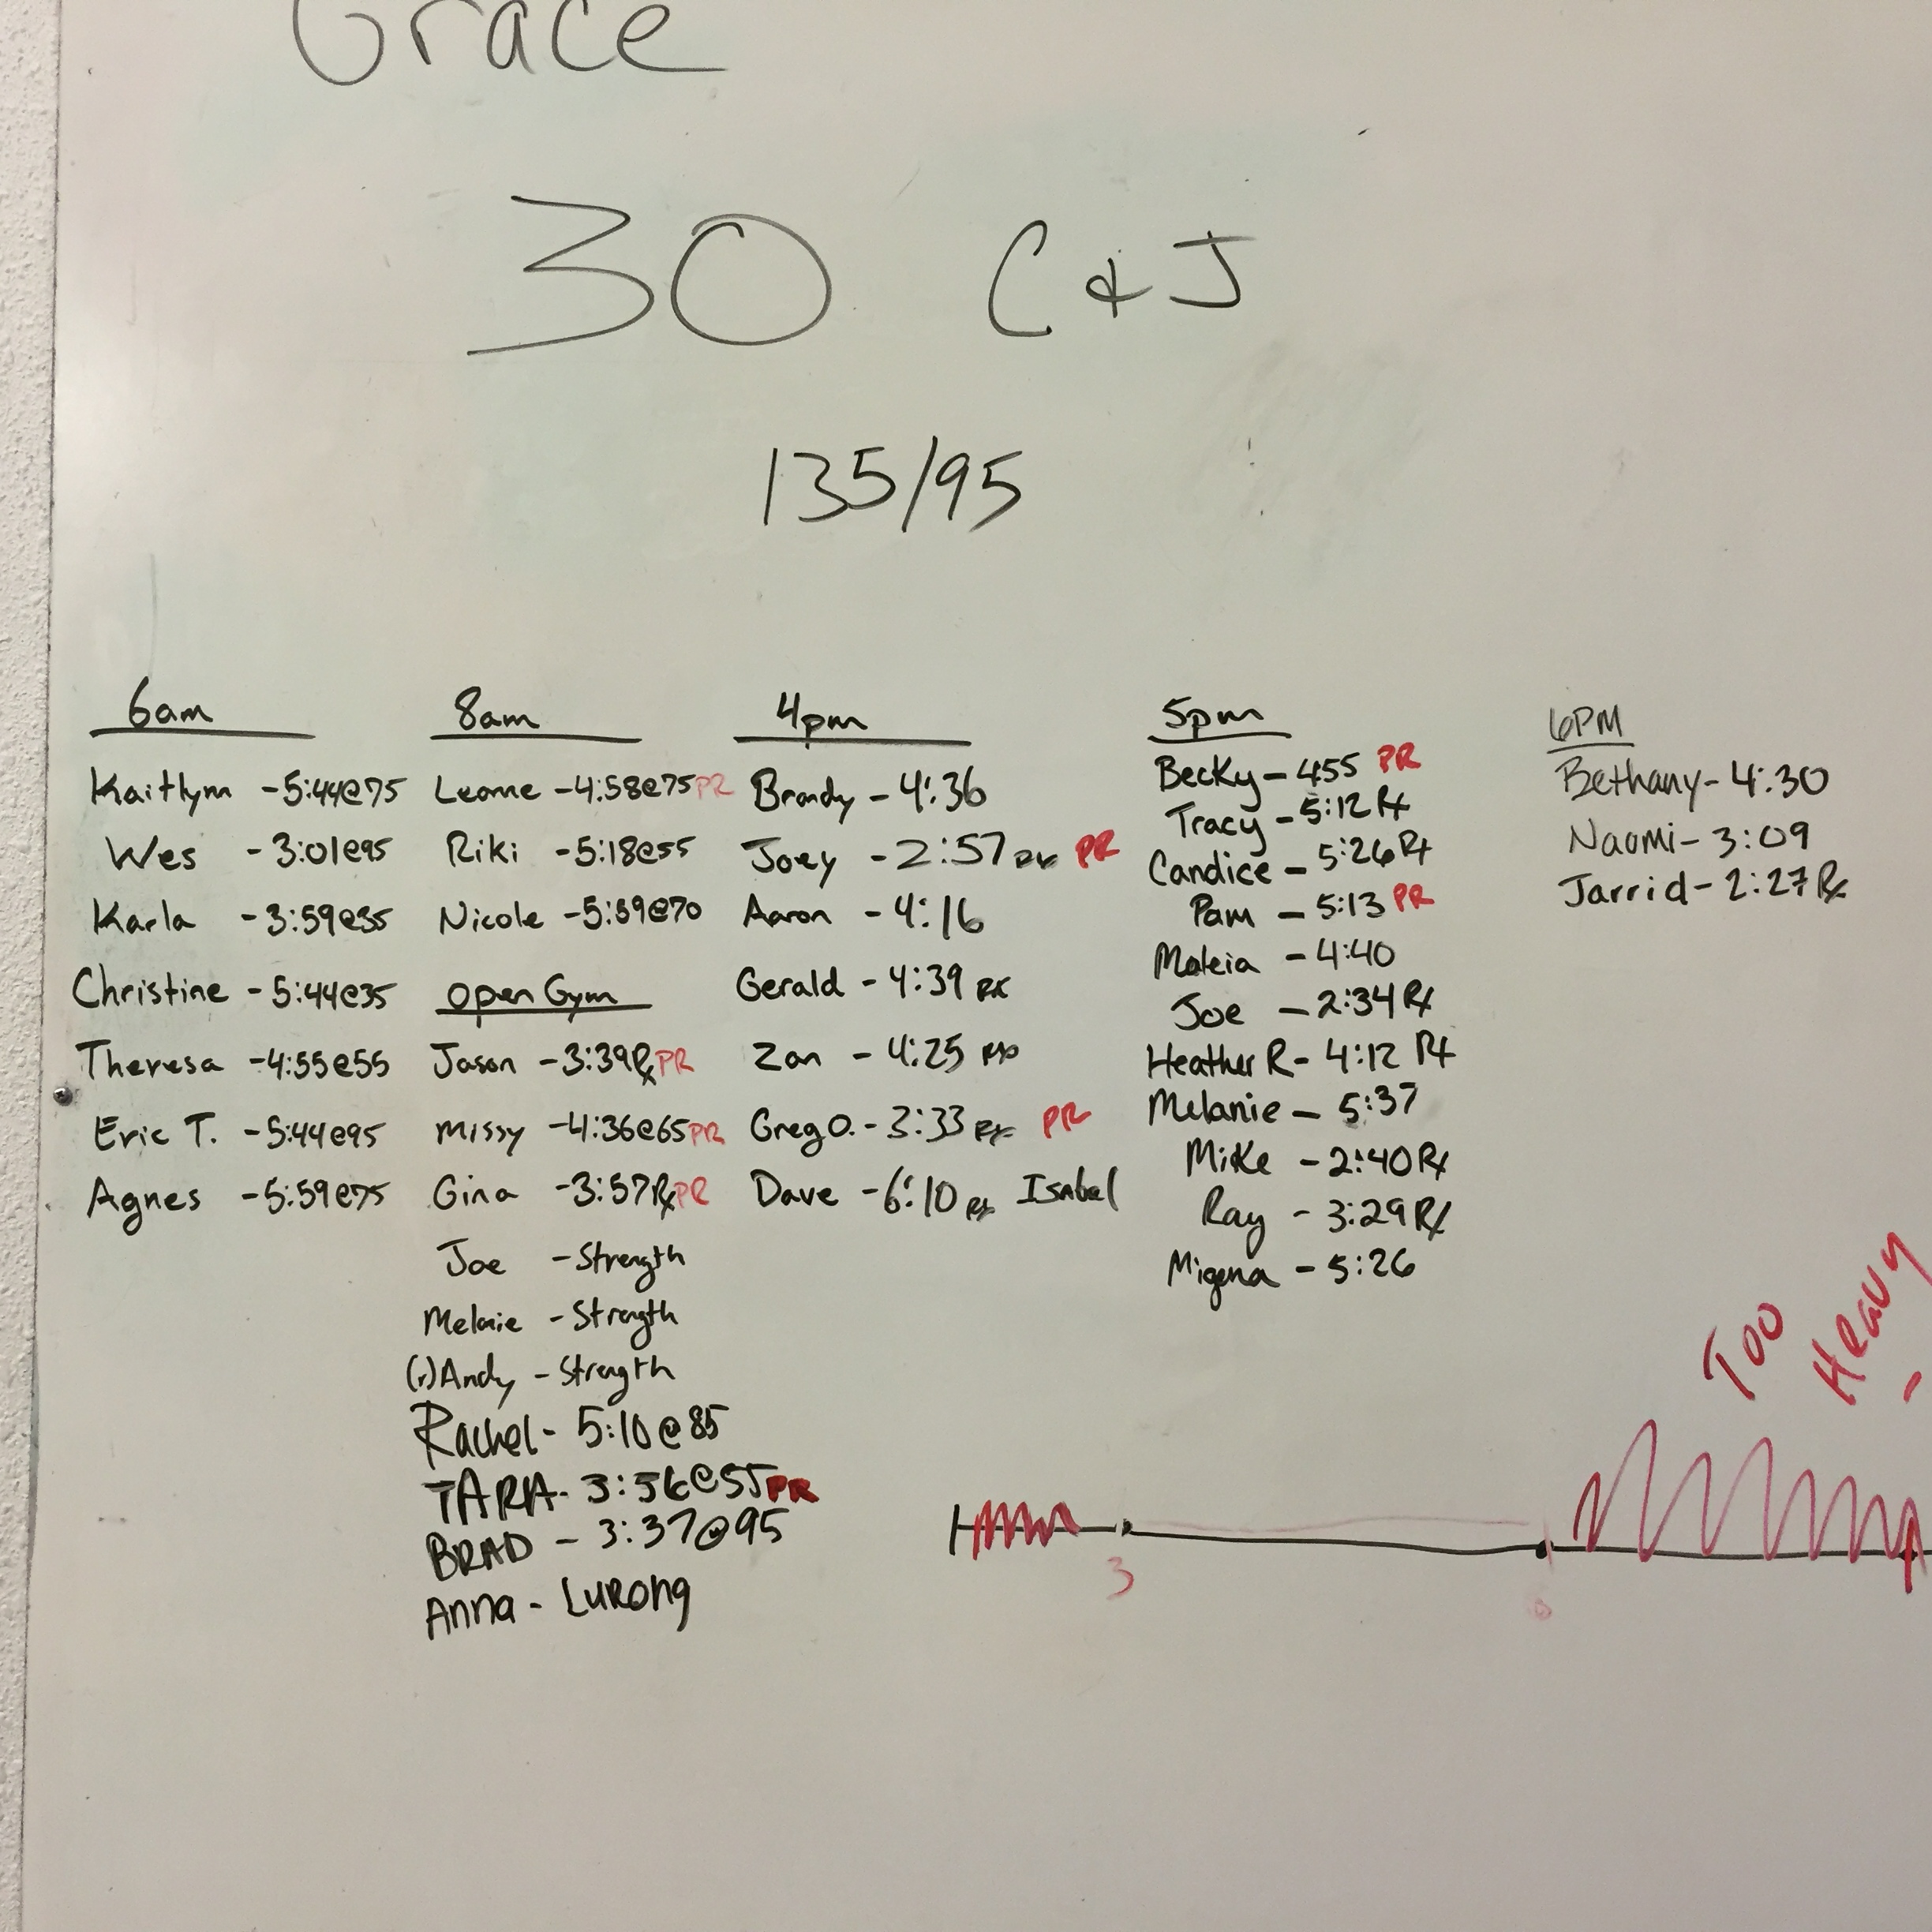 Grace
30 C & J
135/95
6am
Kaitlym - 5:44@75
Wes - 3:01@95
Karla - 3:59@35
Christine - 5:44@35
Theresa - 4:55@55
Eric T. - 5:44@95
Agnes - 5:59@75
8am
Leanne - 4:58@75 PR
Riki - 5:18@55
Nicole - 5:59@70
Open Gym
Jason - 3:39 Rx PR
Missy - 4:36@65 PR
Gina - 3:57 Rx PR
Joe - Strength
Melanie - Strength
(r) Andy - Strength
Rachel - 5:10@85
TARA - @55 PR
BRAD - 3:37@95
Anna - Lurong
4pm
Brandy - 4:36
Joey - 2:57 Rx PR
Aaron - 4:16
Gerald - 4:39 Rx
Zan - 4:25 Rx
Greg O. - 3:33 Rx PR
Dave - 6:10 Rx Isabel
5pm
Becky - 455 PR
Tracy - 5:12 Rx
Candice - 5:26 Rx
Pam - 5:13 PR
- 4:40
Joe - 2:34 Rx
Heather R - 4:12 Rx
Melanie - 5:37
Mike - 2:40 Rx
Ray - 3:29 Rx
Migena - 5:26
6PM
Bethany - 4:30
Naomi - 3:09
Jarrid - 2:27 Rx
Too
Heavy
3